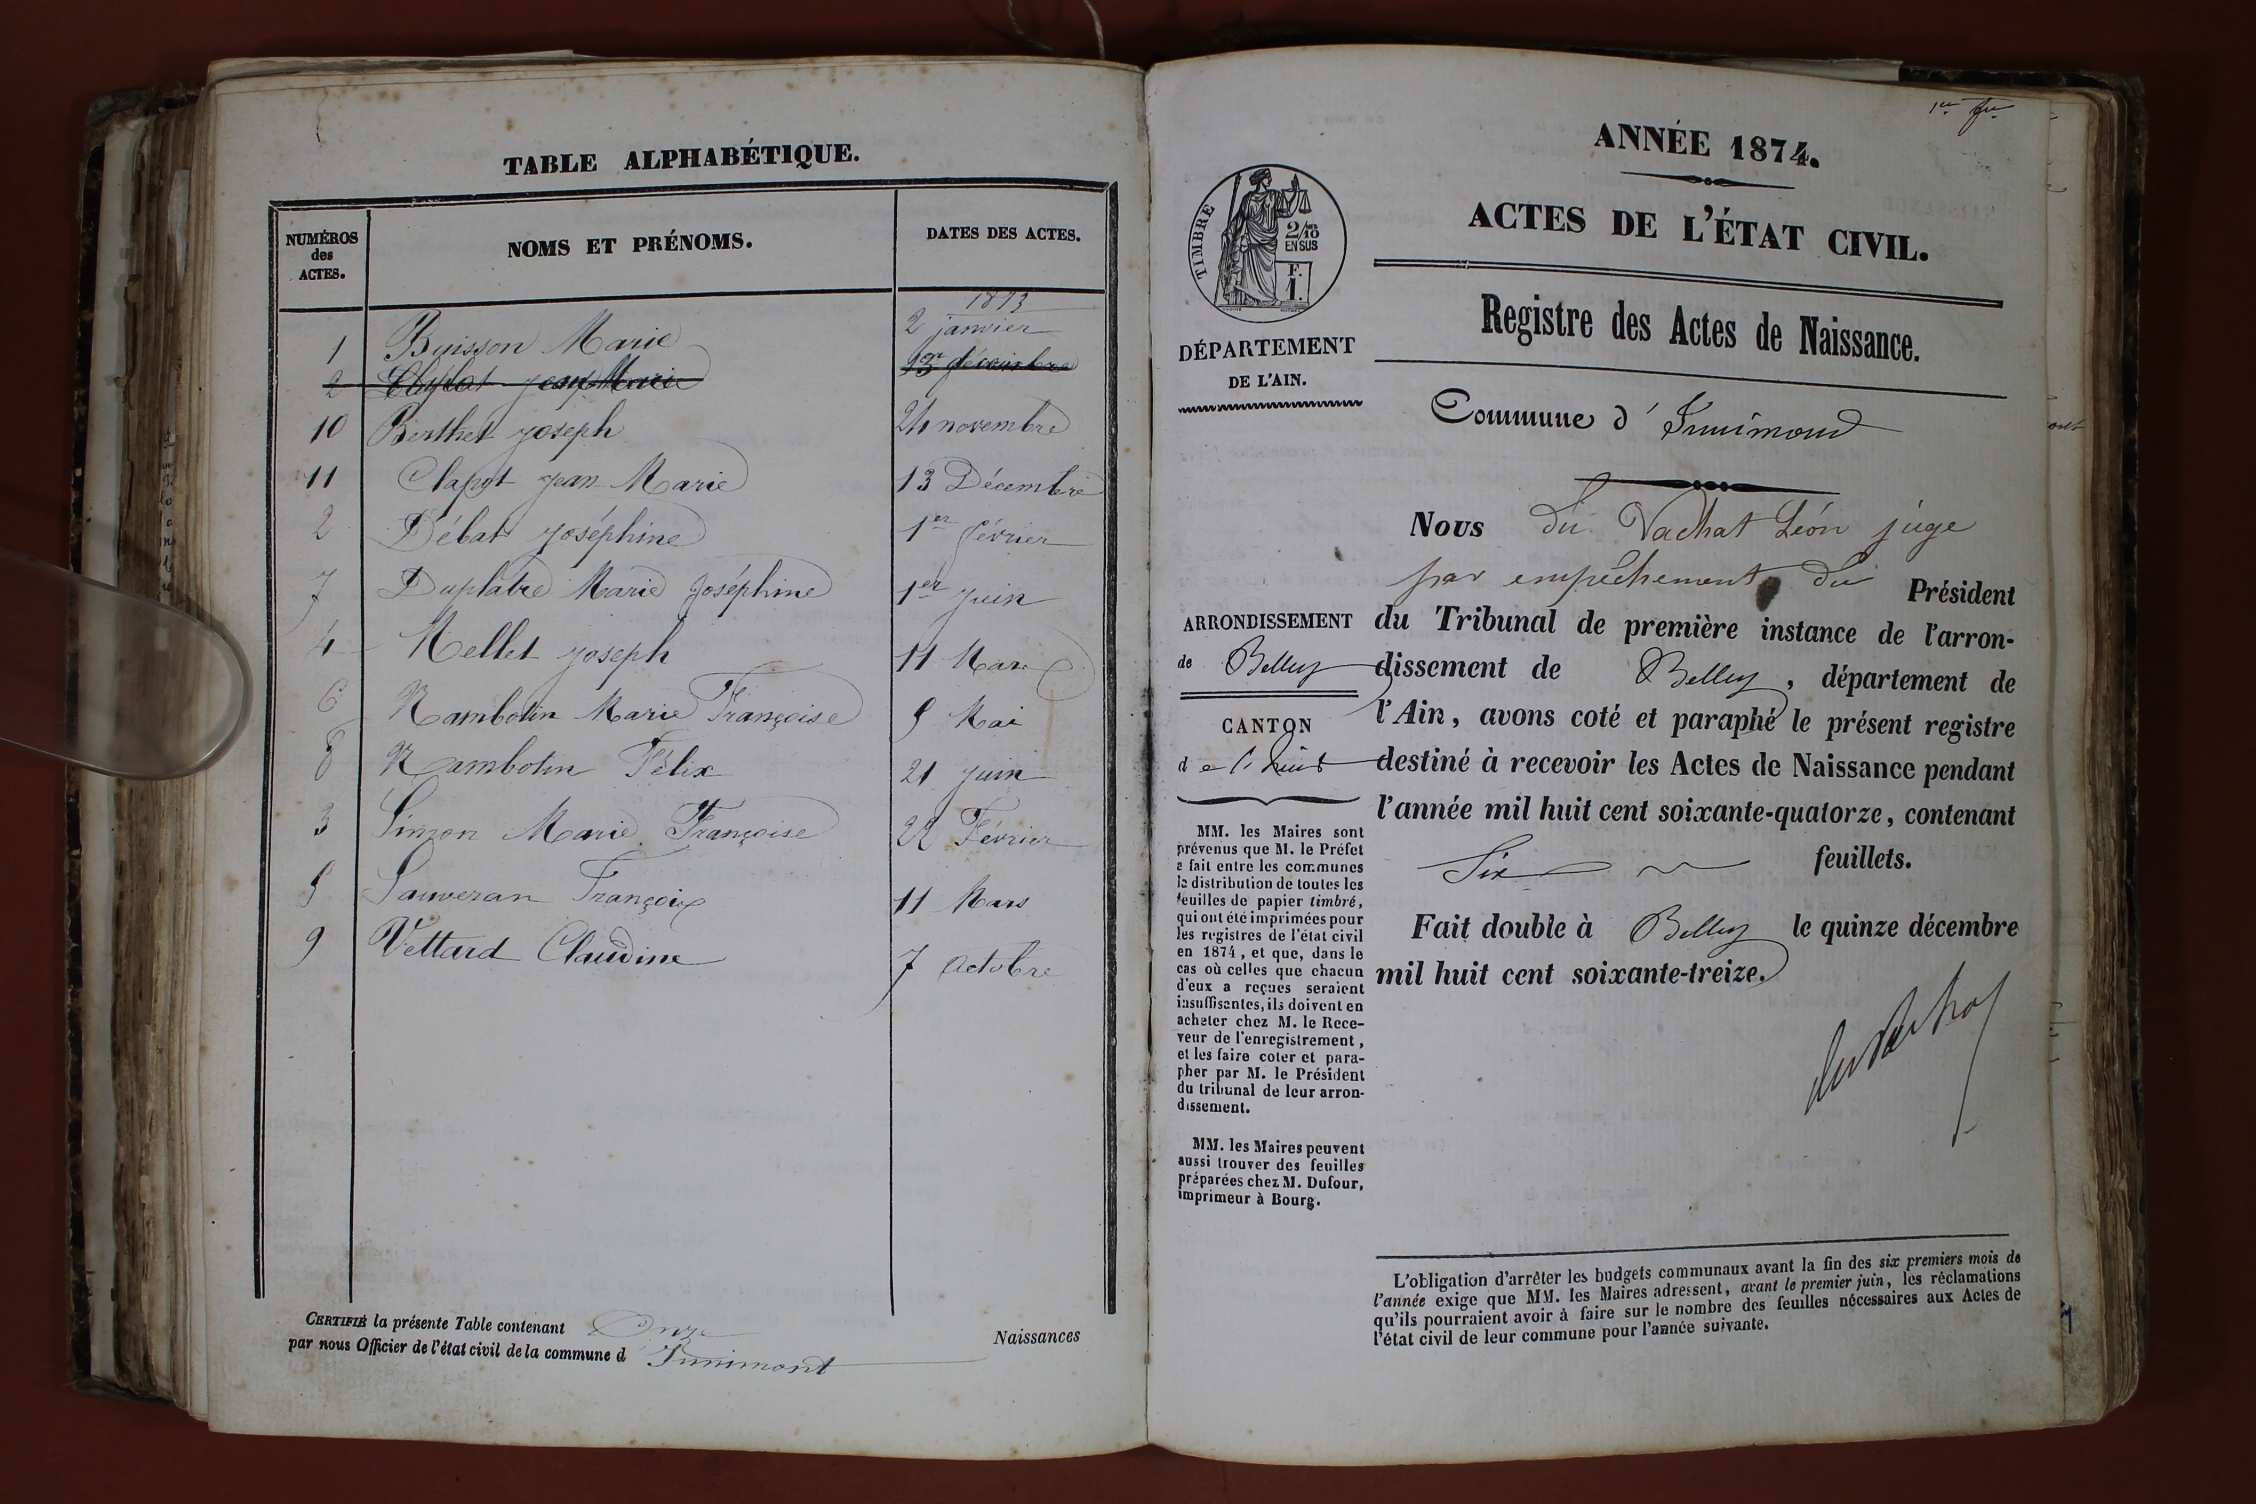 TABLE ALPHABÉTIQUE.
NUMÉROS des ACTES. NOMS ET PRÉNOMS. DATES DES ACTES.
1873
1 Buisson Marie 2 janvier
2 Clapot Jean Marie 13 décembre
10 Berthet Joseph 24 novembre
11 Clapot Jean Marie 13 Décembre
2 Débat Joséphine 1er février
7 Duplatre Marie Joséphine 1er Juin
4 Mellet Joseph 11 Mars
6 Rambotin Marie Françoise 5 Mai
8 Rambotin Félix 21 Juin
3 Simon Marie Françoise 22 Février
5 Sauveran François 11 Mars
9 Vettard Claudine 7 octobre
CERTIFIÉ la présente Table contenant Onze Naissances
par nous Officier de l'état civil de la commune d Innimont
1er
ANNÉE 1874.
ACTES DE L'ÉTAT CIVIL.
Registre des Actes de Naissance.
Commune d' Innimond
TIMBRE
2/10
EN SUS
F.
1.
DÉPARTEMENT
DE L'AIN.
ARRONDISSEMENT
de Belley
CANTON
de l'huis
MM. les Maires sont
prévenus que M. le Préfet
a fait entre les communes
la distribution de toutes les
feuilles de papier timbré,
qui ont été imprimées pour
les registres de l'état civil
en 1874, et que, dans le
cas où celles que chacun
d'eux a reçues seraient
insuffisantes, ils doivent en
acheter chez M. le Rece-
veur de l'enregistrement,
et les faire coter et para-
pher par M. le Président
du tribunal de leur arron-
dissement.
MM. les Maires peuvent
aussi trouver des feuilles
préparées chez M. Dufour,
imprimeur à Bourg.
Nous du Vachat Léon juge
par empêchement du Président
du Tribunal de première instance de l'arron-
dissement de Belley, département de
l'Ain, avons coté et paraphé le présent registre
destiné à recevoir les Actes de Naissance pendant
l'année mil huit cent soixante-quatorze, contenant
Six feuillets.
Fait double à Belley le quinze décembre
mil huit cent soixante-treize.
du Vachat
L'obligation d'arrêter les budgets communaux avant la fin des six premiers mois de
l'année exige que MM. les Maires adressent, avant le premier juin, les réclamations
qu'ils pourraient avoir à faire sur le nombre des feuilles nécessaires aux Actes de
l'état civil de leur commune pour l'année suivante.